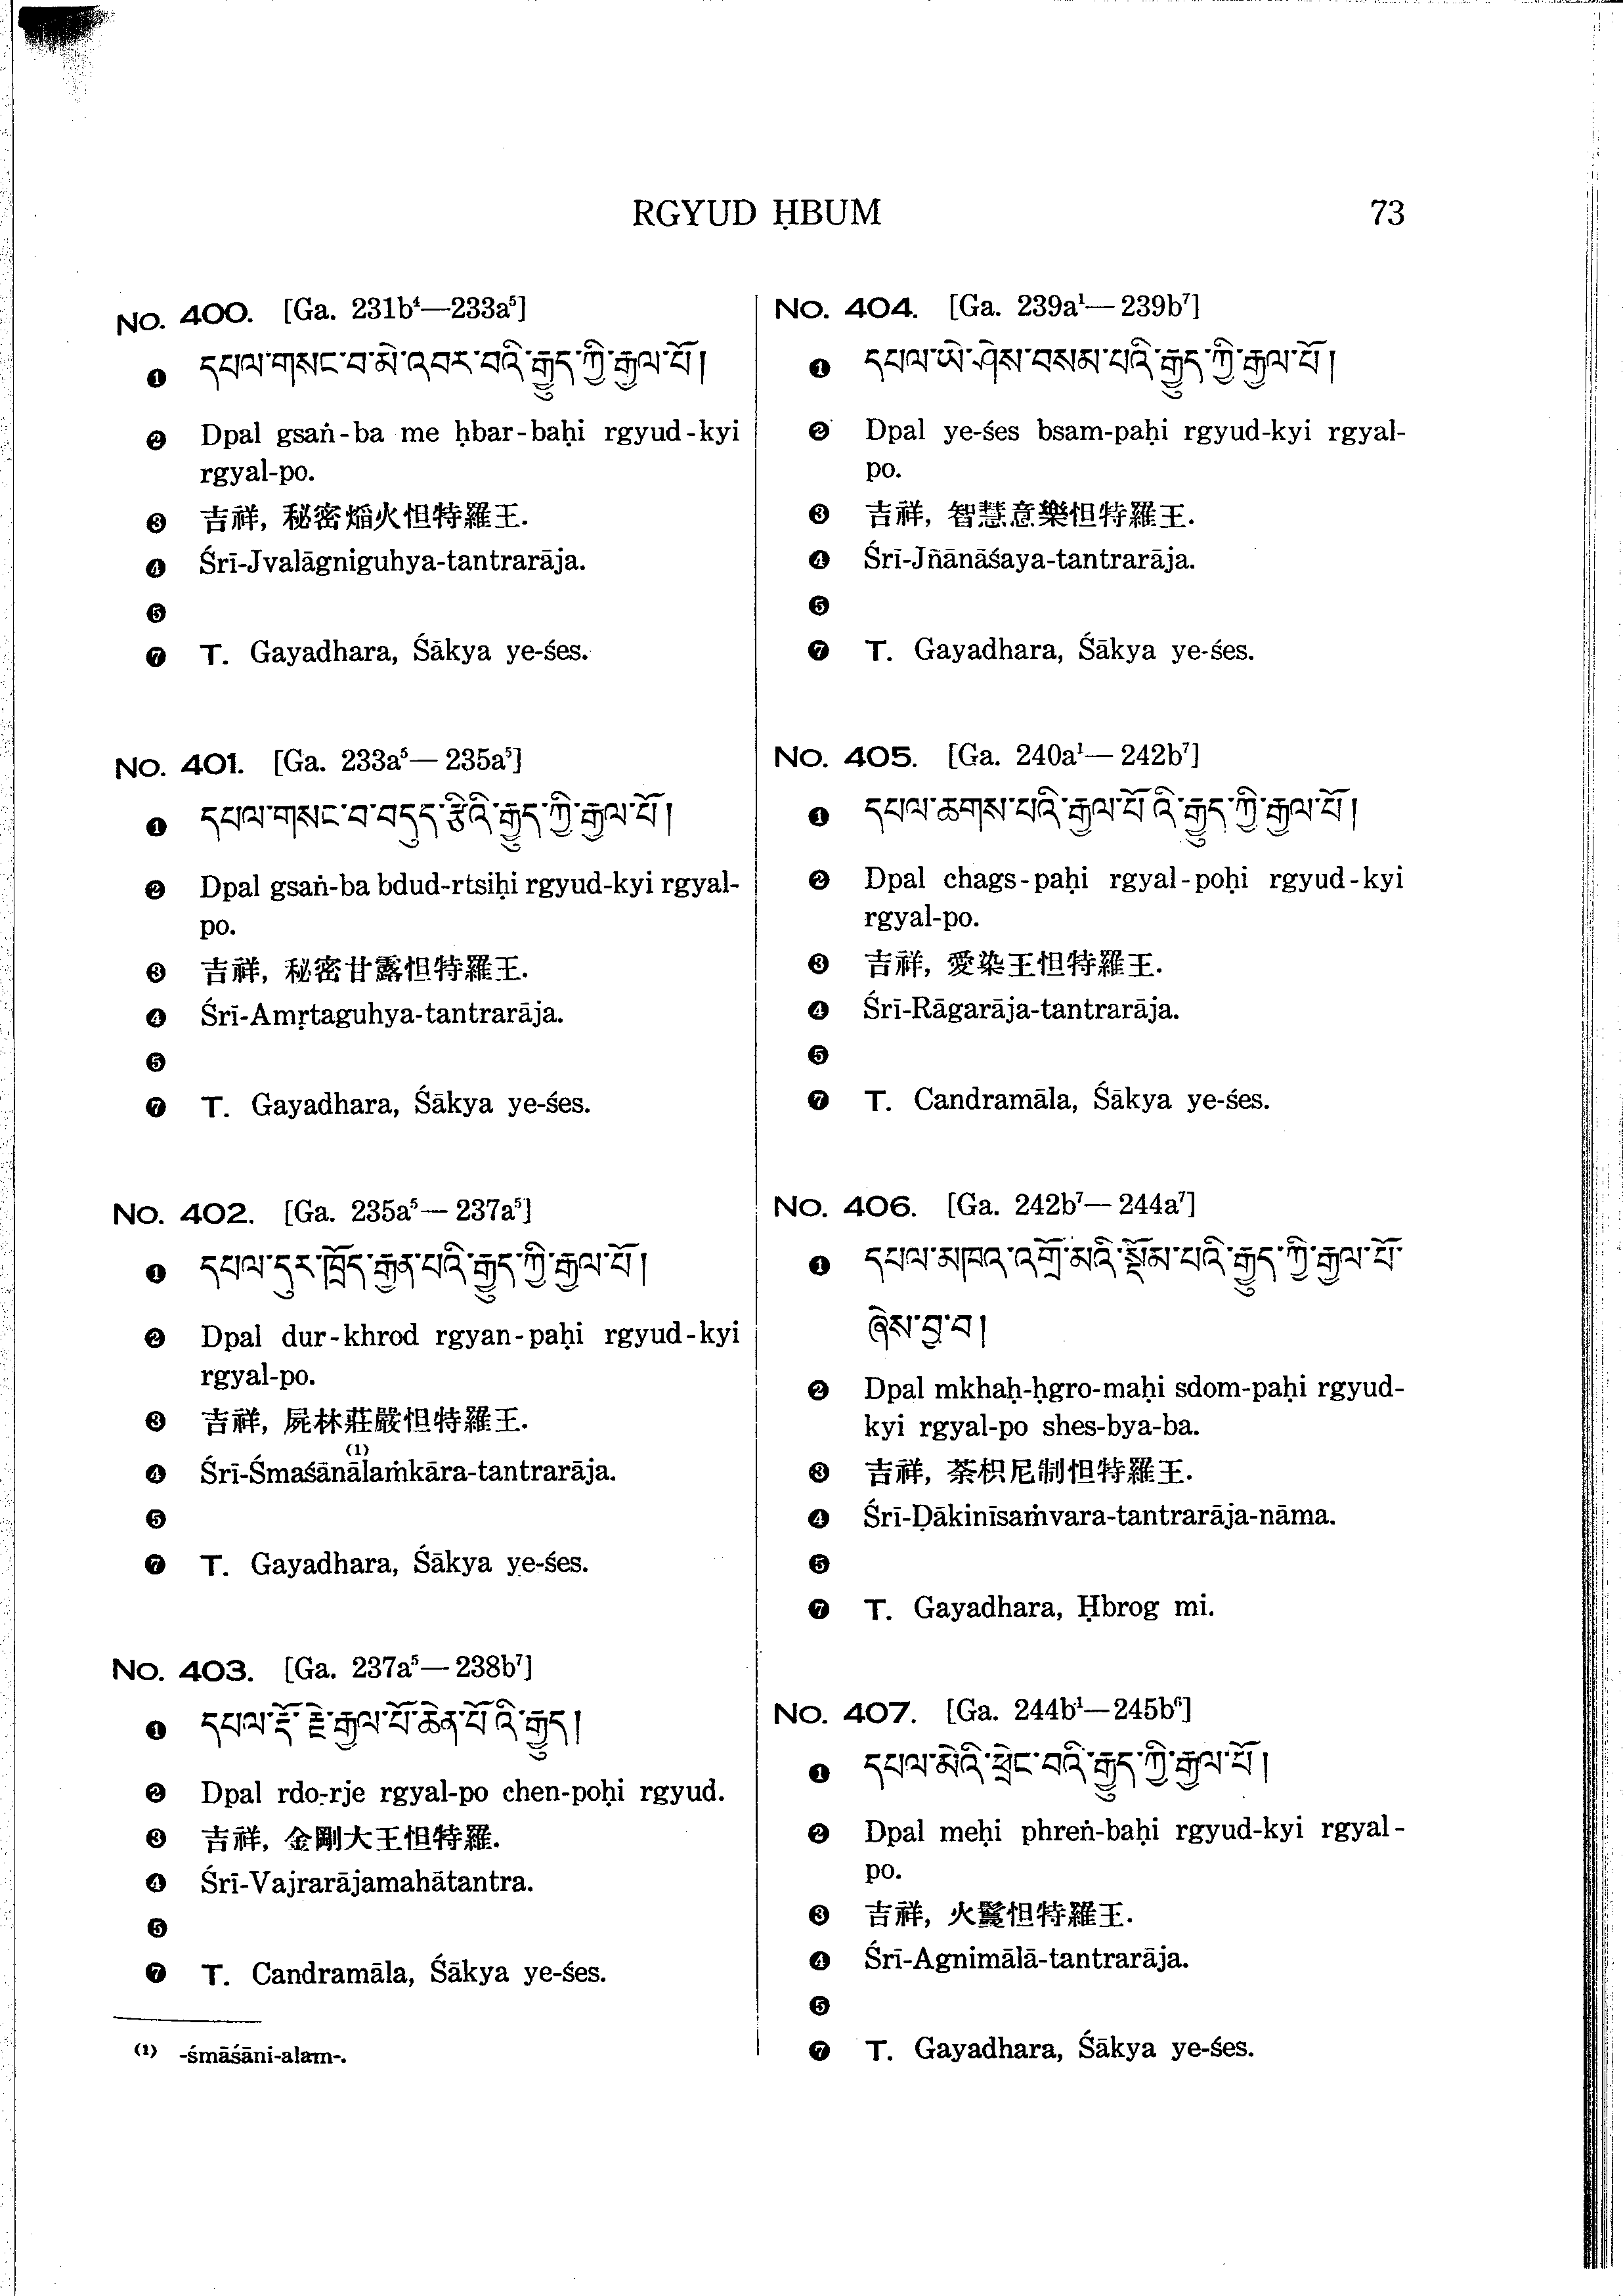 RGYUD ḤBUM
73
No. 400. [Ga. 231b⁴—233a⁵]
❶ དཔལ་གསང་བ་མེ་འབར་བའི་རྒྱུད་ཀྱི་རྒྱལ་པོ།
❷ Dpal gsaṅ-ba me ḥbar-baḥi rgyud-kyi
rgyal-po.
❸ 吉祥, 秘密焔火怛特羅王.
❹ Śrī-Jvalāgniguhya-tantrarāja.
❺
❼ T. Gayadhara, Śākya ye-śes.
No. 401. [Ga. 233a⁵—235a⁵]
❶ དཔལ་གསང་བ་བདུད་རྩིའི་རྒྱུད་ཀྱི་རྒྱལ་པོ།
❷ Dpal gsaṅ-ba bdud-rtsiḥi rgyud-kyi rgyal-
po.
❸ 吉祥, 秘密甘露怛特羅王.
❹ Śrī-Amṛtaguhya-tantrarāja.
❺
❼ T. Gayadhara, Śākya ye-śes.
No. 402. [Ga. 235a⁵—237a⁵]
❶ དཔལ་དུར་ཁྲོད་རྒྱན་པའི་རྒྱུད་ཀྱི་རྒྱལ་པོ།
❷ Dpal dur-khrod rgyan-paḥi rgyud-kyi
rgyal-po.
❸ 吉祥, 屍林莊嚴怛特羅王.
❹ Śrī-Śmaśānālaṁkāra-tantrarāja. ⁽¹⁾
❺
❼ T. Gayadhara, Śākya ye-śes.
No. 403. [Ga. 237a⁵—238b⁷]
❶ དཔལ་རྡོ་རྗེ་རྒྱལ་པོ་ཆེན་པོའི་རྒྱུད།
❷ Dpal rdo-rje rgyal-po chen-poḥi rgyud.
❸ 吉祥, 金剛大王怛特羅.
❹ Śrī-Vajrarājamahātantra.
❺
❼ T. Candramāla, Śākya ye-śes.
⁽¹⁾ -śmāśāni-alam-.
No. 404. [Ga. 239a¹—239b⁷]
❶ དཔལ་ཡེ་ཤེས་བསམ་པའི་རྒྱུད་ཀྱི་རྒྱལ་པོ།
❷ Dpal ye-śes bsam-paḥi rgyud-kyi rgyal-
po.
❸ 吉祥, 智慧意樂怛特羅王.
❹ Śrī-Jñānāśaya-tantrarāja.
❺
❼ T. Gayadhara, Śākya ye-śes.
No. 405. [Ga. 240a¹—242b⁷]
❶ དཔལ་ཆགས་པའི་རྒྱལ་པོའི་རྒྱུད་ཀྱི་རྒྱལ་པོ།
❷ Dpal chags-paḥi rgyal-poḥi rgyud-kyi
rgyal-po.
❸ 吉祥, 愛染王怛特羅王.
❹ Śrī-Rāgarāja-tantrarāja.
❺
❼ T. Candramāla, Śākya ye-śes.
No. 406. [Ga. 242b⁷—244a⁷]
❶ དཔལ་མཁའ་འགྲོ་མའི་སྡོམ་པའི་རྒྱུད་ཀྱི་རྒྱལ་པོ་
ཞེས་བྱ་བ།
❷ Dpal mkhaḥ-ḥgro-maḥi sdom-paḥi rgyud-
kyi rgyal-po shes-bya-ba.
❸ 吉祥, 荼枳尼制怛特羅王.
❹ Śrī-Ḍākinīsaṁvara-tantrarāja-nāma.
❺
❼ T. Gayadhara, Ḥbrog mi.
No. 407. [Ga. 244b¹—245b⁶]
❶ དཔལ་མེའི་ཕྲེང་བའི་རྒྱུད་ཀྱི་རྒྱལ་པོ།
❷ Dpal meḥi phreṅ-baḥi rgyud-kyi rgyal-
po.
❸ 吉祥, 火鬘怛特羅王.
❹ Śrī-Agnimālā-tantrarāja.
❺
❼ T. Gayadhara, Śākya ye-śes.